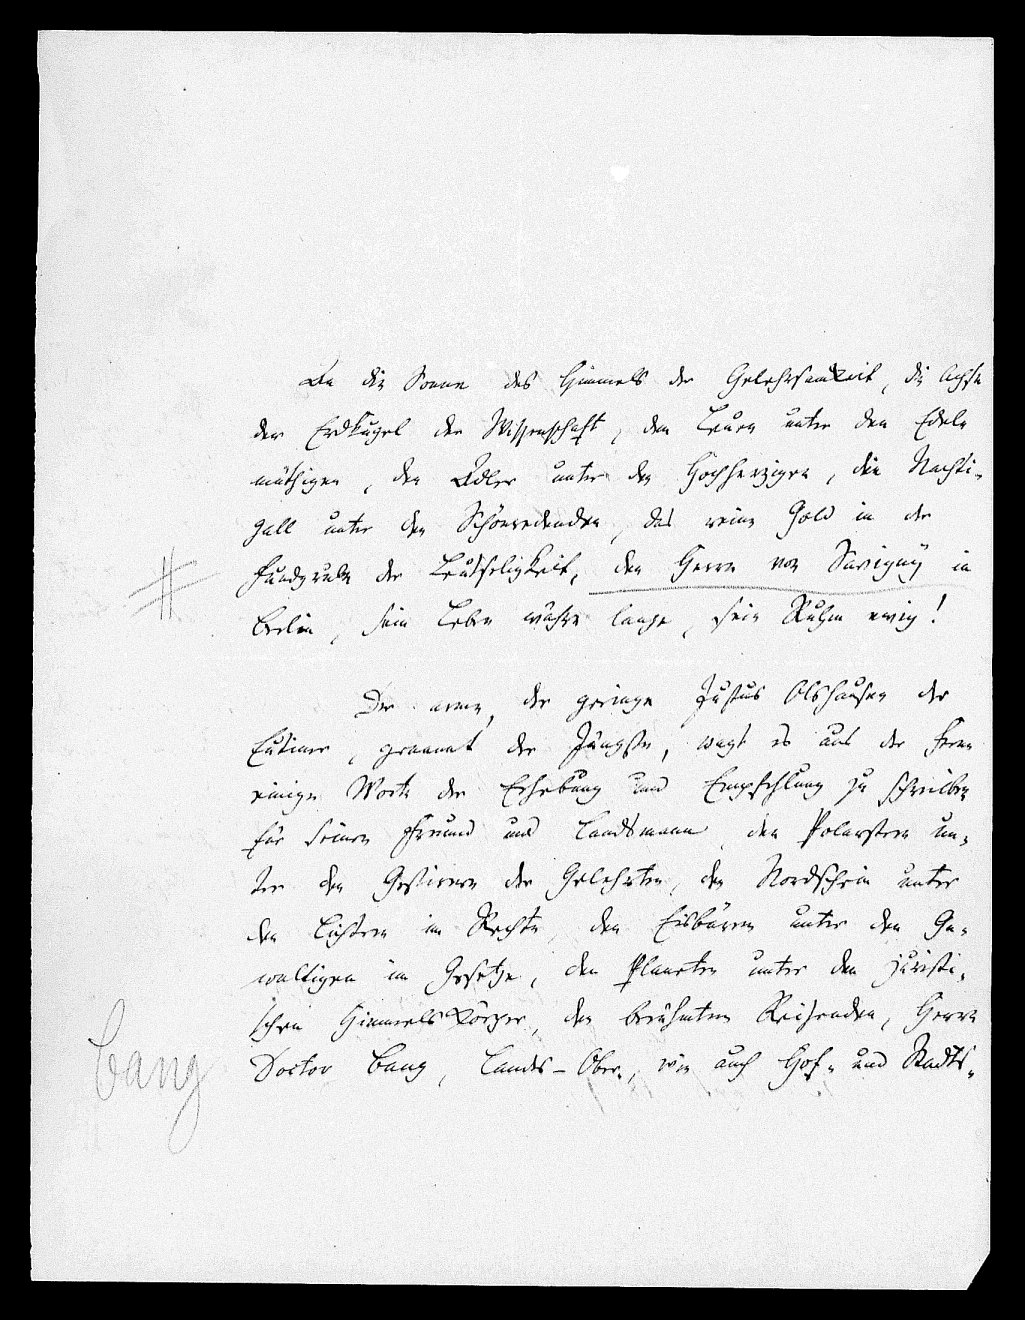 An die Sonne des Himmels der Gelehrsamkeit, die Achse
der Erdkugel der Wissenschaft, den Leuen unter den Edel-
müthigen, den Adler unter den Hochherzigen, die Nachti-
gall unter den Schönredenden, das reine Gold in der
Fundgrube der Leutseligkeit, den Herrn von Savigny in
Berlin, sein Leben währe lange, sein Ruhm ewig!
Der arme, der geringe Justus Olshausen der
Eutiner, genannt der Jüngste, wagt es aus der Ferne
einige Worte der Erhebung und Empfehlung zu schreiben
für seinen Freund und Landsmann, den Polarstern un-
ter den Gestirnen der Gelehrten, den Nordschein unter
den Lichtern im Rechte, den Eisbären unter den Ge-
waltigen im Gesetze, den Planeten unter den juristi-
schen Himmelskörper, den berühmten Reisenden, Herrn
Bang
Doctor Bang, Landes-Ober-, wie auch Hof- und Stadts-